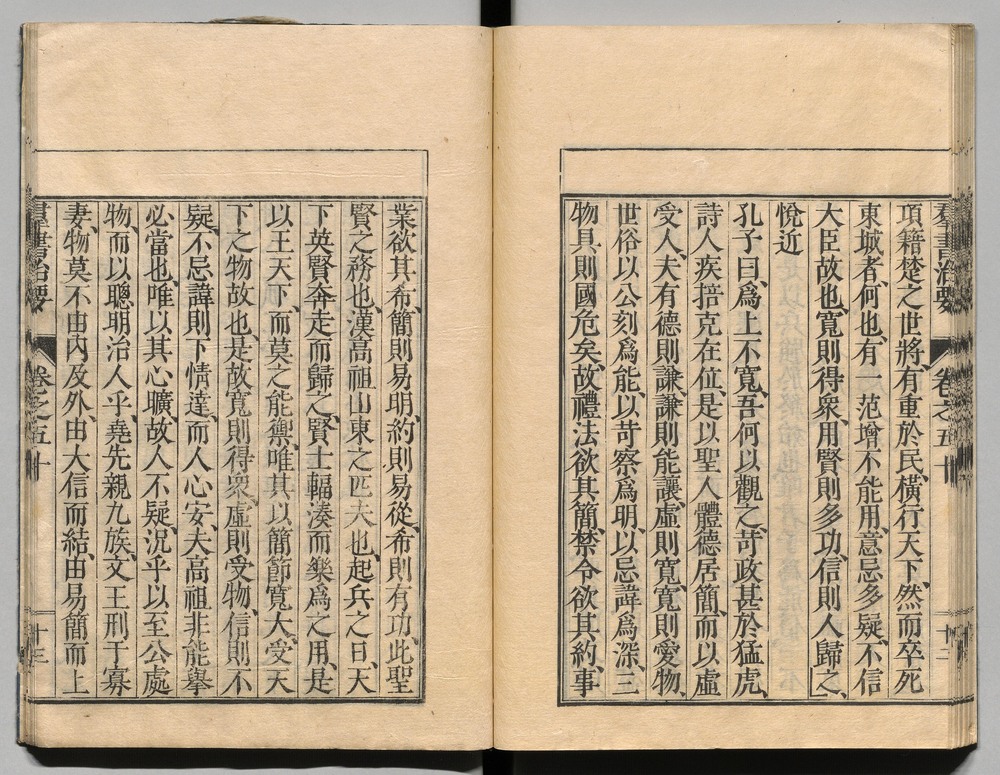 羣書治要 卷之五十 十二
項籍楚之世將、有重於民、橫行天下、然而卒死
東城者、何也、有一范增不能用、意忌多疑、不信
大臣故也、寬則得衆、用賢則多功、信則人歸之、
悅近
孔子曰、爲上不寬、吾何以觀之、苛政甚於猛虎、
詩人疾掊克在位、是以聖人體德居簡、而以虛
受人、夫有德則謙、謙則能讓、虛則寬、寬則愛物、
世俗以公刻爲能、以苛察爲明、以忌諱爲深、三
物具、則國危矣、故禮法欲其簡、禁令欲其約、事
業欲其希、簡則易明、約則易從、希則有功、此聖
賢之務也、漢高祖山東之匹夫也、起兵之日、天
下英賢奔走而歸之、賢士輻湊而樂爲之用、是
以王天下、而莫之能禦、唯其以簡節寬大、受天
下之物故也、是故寬則得衆、虛則受物、信則不
疑、不忌諱則下情達、而人心安、夫高祖非能舉
必當也、唯以其心曠、故人不疑、況乎以至公處
物、而以聰明治人乎、堯先親九族、文王刑于寡
妻、物莫不由內及外、由大信而結、由易簡而上
羣書治要 卷之五十 十三